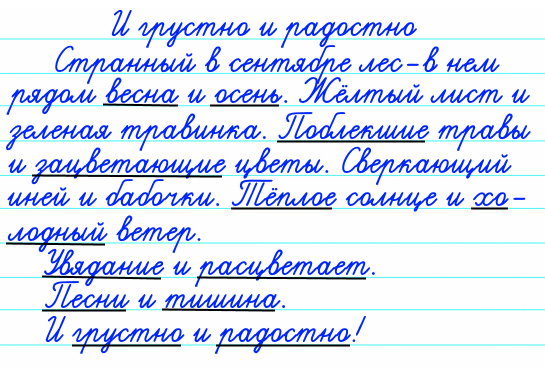 И грустно и радостно
Странный в сентябре лес – в нем
рядом весна и осень. Жёлтый лист и
зеленая травинка. Поблекшие травы
и зацветающие цветы. Сверкающий
иней и бабочки. Тёплое солнце и хо-
лодный ветер.
Увядание и расцветает.
Песни и тишина.
И грустно и радостно!